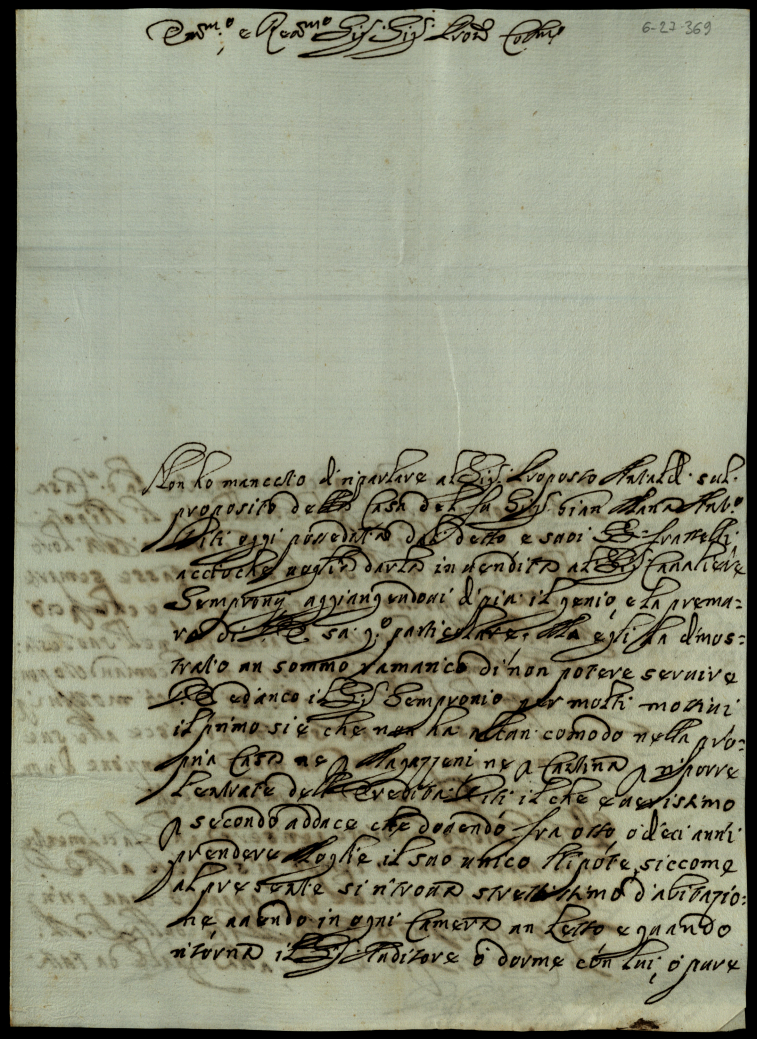 6-27-369
Ill.mo e Rev.mo Sig. Sig. Pron. Col.mo
Non ho mancato di riparlare al Sig. Proposto Antaldi sul
proposito della Casa del fu Sig. Gian Maria
oggi posseduta dal detto e suoi Sig. fratelli
acciochè voglia darla in vendita al Sig. Cavaliere
Sempronij aggiungendovi di più il genio, e la premu=
ra di V. S. particolare. Ma egli ha dimos=
trato un sommo ramarico di non potere servire
V. S. ed anco il Sig. Sempronio per molti motivi
il primo si è che non ha altan comodo nella pro=
pria Casa ne p Magazzeni ne p Cantina p riporre
l'entrate dell'Eredità il che è verissimo
p secondo adduce che dovendo fra otto o dieci anni
prendere Moglie il suo unico Nipote, siccome
al presente si ritrova strettissimo d'abitazio=
ne avendo in ogni Camera un Letto e quando
ritorna il Sig. Auditore o dorme con lui, o pure